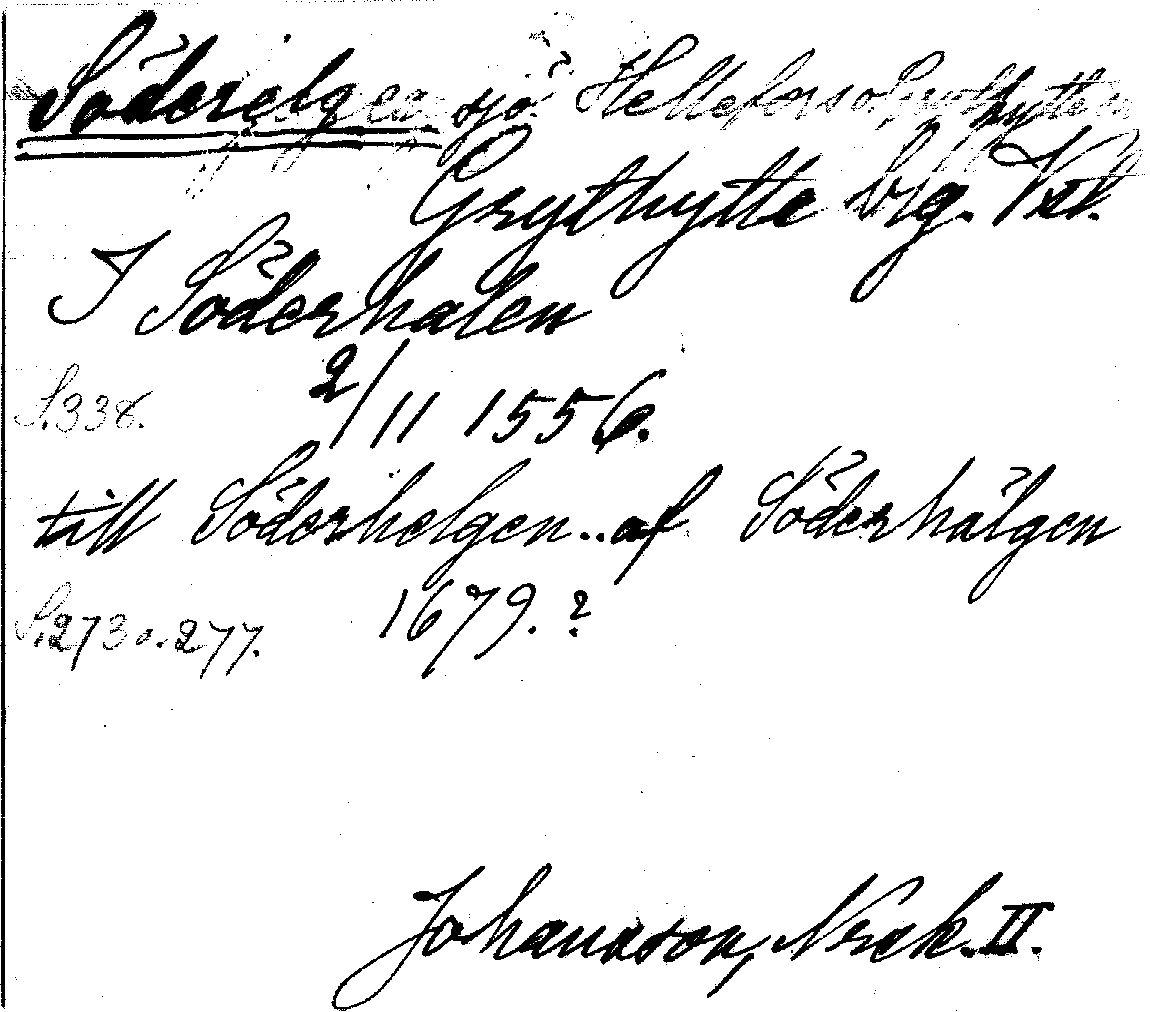 Söderelgen sjö Hellefors o. Grythytte sn
Grythytte brg. Vstl.
I Söderhalen
S. 338. 2/11 1556.
till Söderhelgen .. af Söderhälgen
S. 273 o. 277. 1679. ?
Johansson, Nrek. II.